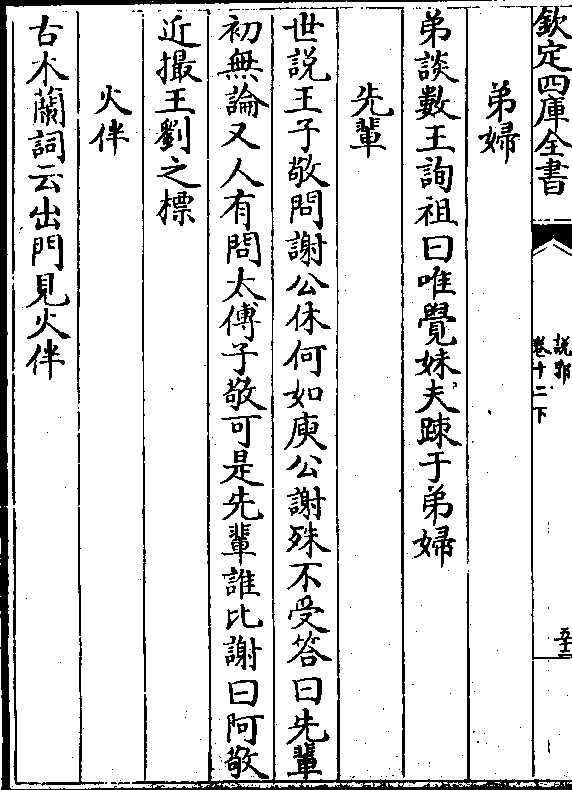 欽定四庫全書
說郛
卷十二下
五十二
弟婦
弟談數王詢祖曰唯覺妹夫踈于弟婦
先輩
世說王子敬問謝公休何如庾公謝殊不受答曰先輩
初無論又人有問太傅子敬可是先輩誰比謝曰阿敬
近撮王劉之標
火伴
古木蘭詞云出門見火伴